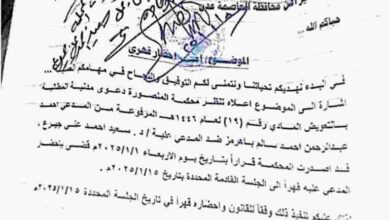 أمن محافظة العاصمة عدن
حياكم الله...
الموضوع/ أمر احضار قهري
في البدء نهديكم تحياتنا ونتمنى لكم التوفيق والنجاح في مهامكم
اشارة الى الموضوع اعلاه تنظر محكمة المنصورة دعوى مدنية المطلبة
بالتعويض المادي رقم (١٩) لعام ١٤٤٦هـ المرفوعة من المدعي احمد
عبدالرحمن احمد سالم باهرمز ضد المدعى علية / د. سعيد احمد علي جبرع .
قد اصدرت المحكمة قراراً بتاريخ يوم الاربعاء ٢٠٢٥/١/١م قضى بإحضار
المدعى عليه قهراً الى الجلسة القادمة المحددة بتاريخ ٢٠٢٥/١/١٥م
عليكم تنفيذ ذلك وفقاً للقانون واحضاره قهراً في تاريخ الجلسة المحددة ٢٠٢٥/١/١٥م